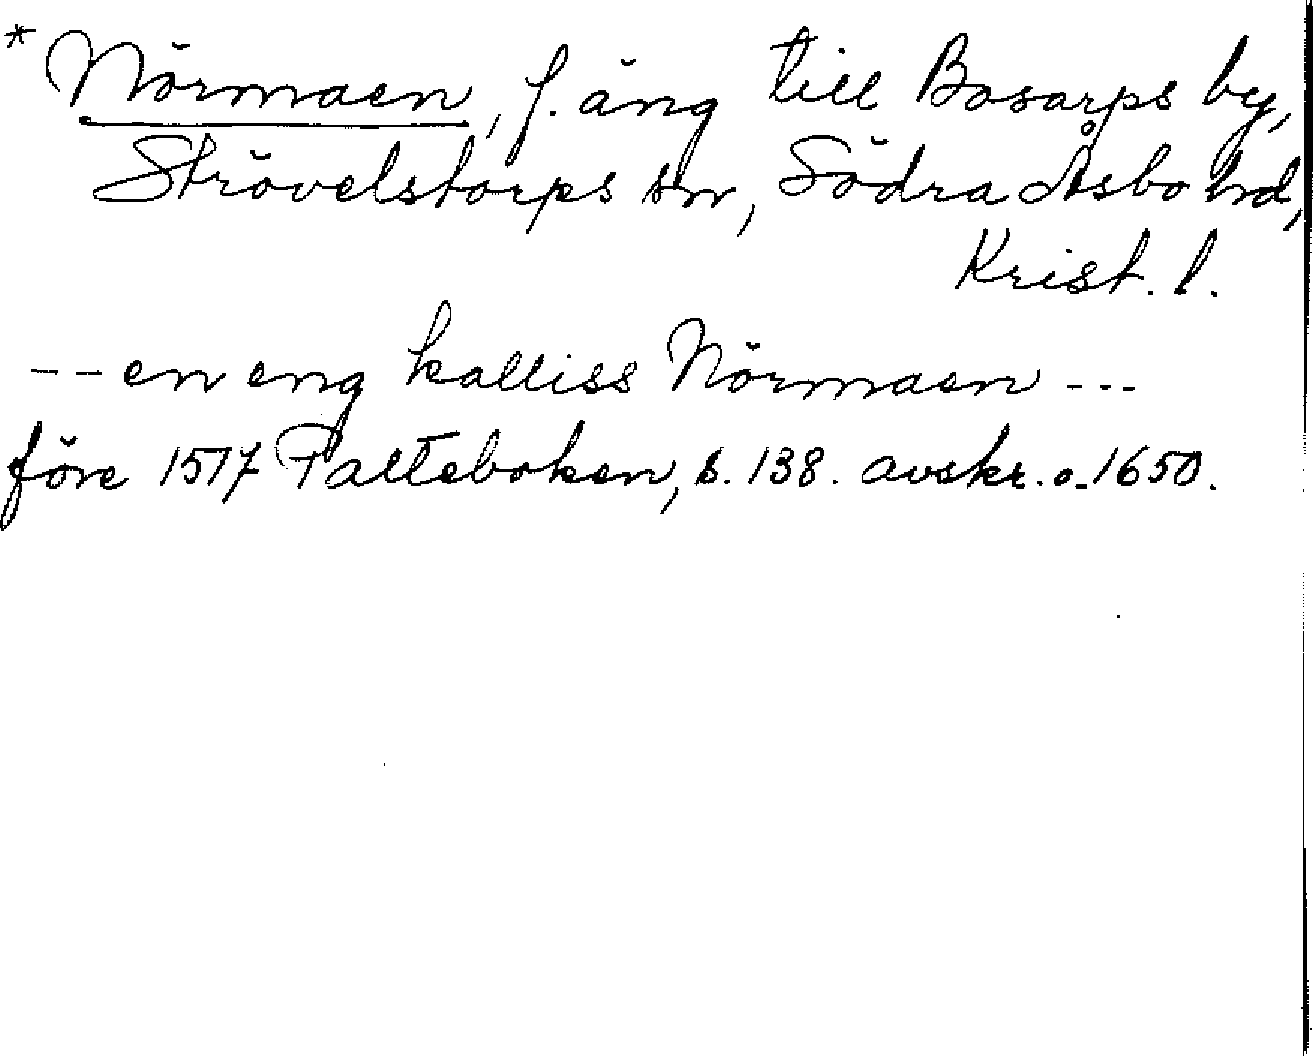 *Nörmaen, f. äng till Bosarps by,
Strövelstorps sn, Södra Åsbo hd,
Krist. l.
-- en eng kalliss Nörmaen ---
före 1517 Palteboken, s. 138. avskr. o. 1650.